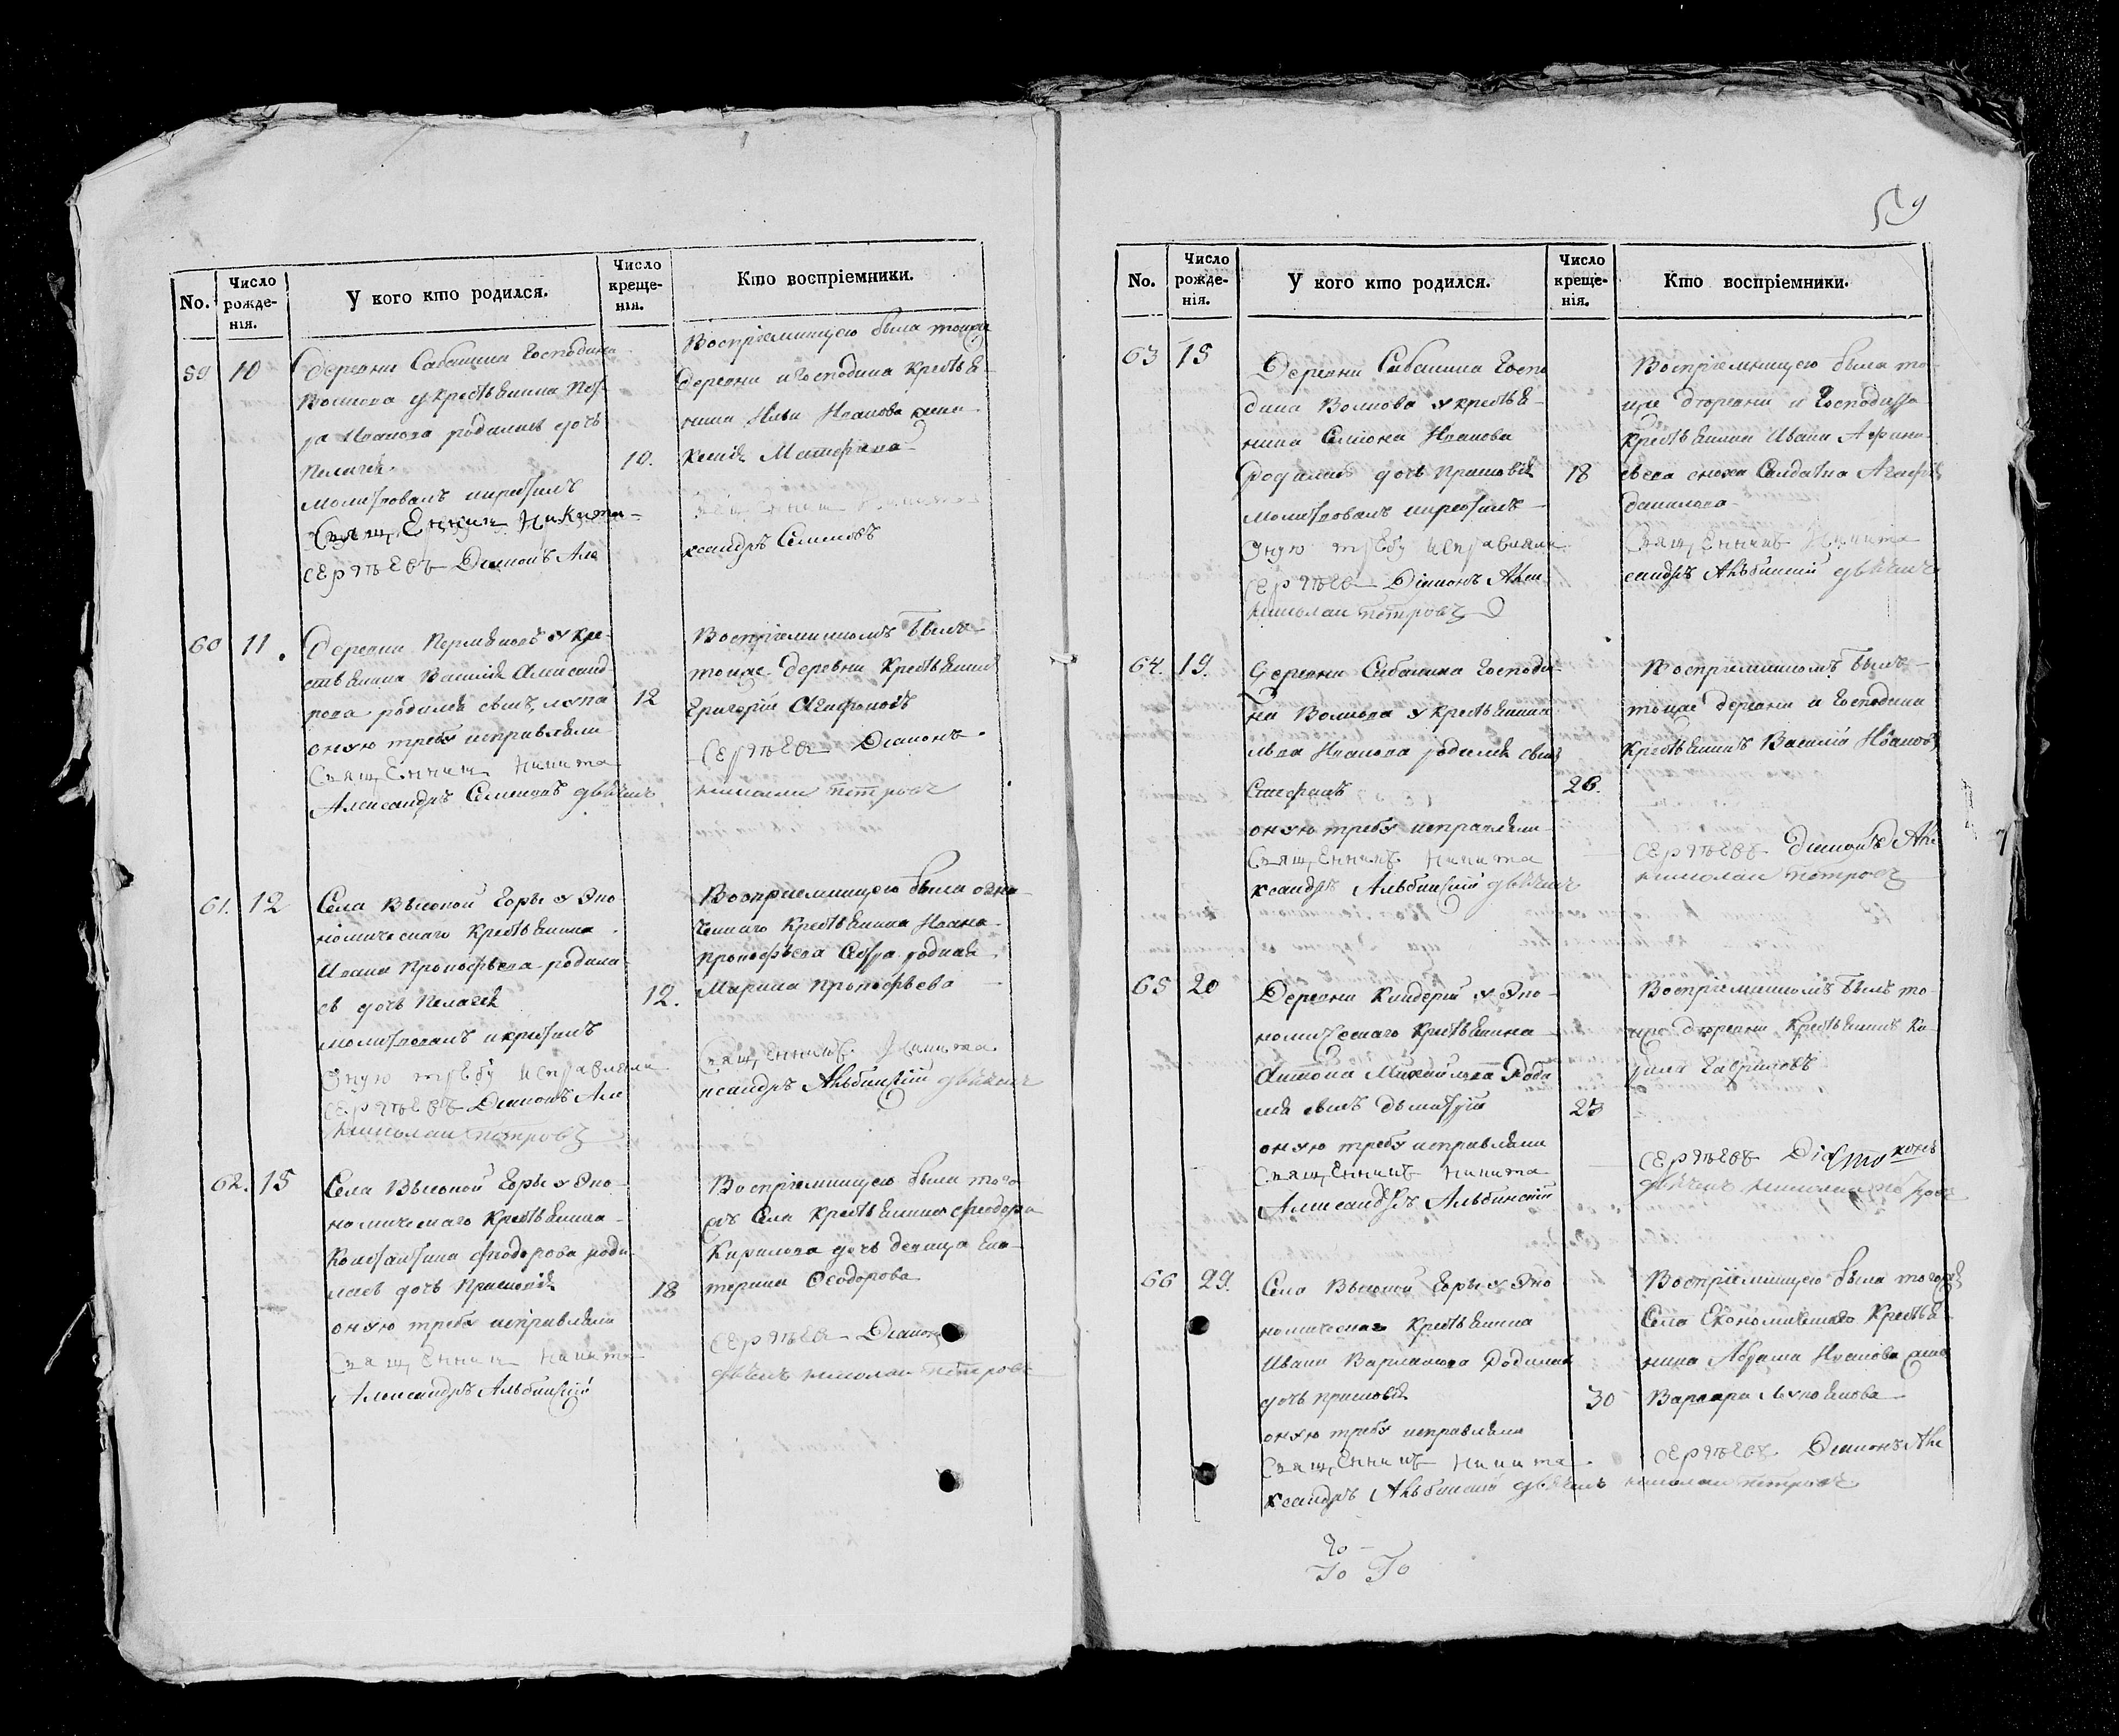 59
No.
Число рожденія.
У кого кто родился.
Число крещенія.
Кто воспріемники.
59
10
Деревни Сабанина Господина
Волкова у крестьянина Пет
ра Иванова родилась дочь
Пелагея
молитвовалъ икрестилъ
Священник Никита
Сергѣевъ Діаконъ Але
10.
Воспріемницею была тоиже
деревни игосподина крестья-
нина Ильи Иванова жена
Ксенія
ксандръ Семеновъ
60
11.
Деревни у кре-
стьянина Василія Александ
рова родился сынъ
оную требу исправляли
Священник Никита
Александръ Семеновъ дьячекъ
12
Воспріемникомъ былъ
тоиже деревни крестьянинъ
Григорій Агафоновъ
Сергѣевъ Діаконъ
николаи петровъ
61.
12
Села Высокой Горы у Эко
номическаго крестьянина
Ивана Прокофьева родила-
сь дочь Пелагея
молитвовалъ икрестилъ
Оную требу исправляли
Сергѣевъ Діаконъ Але
николаи петровъ
12.
Воспріемницею была озна-
ченнаго крестьянина Ивана
Прокофьева сестра родная
Марина Прокофьева
Священникъ Никита
ксандръ Альбинскій дьячекъ
62.
15
Села Высокой Горы у Эко-
номическаго крестьянина
Константина Феодорова роди-
лась дочь Прасковія
оную требу исправляли
Священник Никита
Александръ Альбинскій
18
Воспріемницею была того
жъ села крестьянина Феодора
Кирилова дочь девица Ека-
терина Феодорова
Сергѣевъ Діаконъ
дьячекъ николаи петровъ
No.
Число рожденія.
У кого кто родился.
Число крещенія.
Кто воспріемники.
63
15
Деревни Сабанина Госпо
дина Волкова у крестья-
нина Семіона Иванова
родилась дочь Прасковія
молитвовалъ икрестилъ
Оную требу исправляли
Сергѣевъ Діаконъ Але
николаи петровъ
18
Воспріемницею была то-
иже деревни и Господина
крестьянина Ивана Афана-
сьева сноха Солдатка Агафія
Данилова
Священникъ Никита
ксандръ Альбинскій дьячекъ
64.
19.
Деревни Сабанина Господи-
на Волкова у крестьянина
Льва Иванова родился сынъ
Стефанъ
оную требу исправляли
Священникъ Никита
ксандръ Альбинскій дьячекъ
26.
Воспріемникомъ былъ
тоиже деревни и Господина
крестьянинъ Василій Ивановъ
Сергѣевъ Діаконъ Але
николаи петровъ
65
20
Деревни Киндерій у Эко-
номическаго крестьянина
Антона Михайлова Роди
лся сынъ Дмитрій
оную требу исправляли
Священникъ Никита
Александръ Альбинскій
23
Воспріемникомъ былъ то-
иже деревни крестьянинъ Ки-
рила Гавриловъ
Сергѣевъ Діаконъ
дьячекъ николаи петровъ
66
29.
Села Высокой Горы у Эко
номическаго крестьянина
Ивана Варламова Родилась
дочь Прасковія
оную требу исправляли
Священникъ Никита
ксандръ Альбинскій дьячекъ николаи петровъ
30
Воспріемницею была тогожъ
Села Економическаго крестья-
нина Абрама Иванова жена
Варвара
Сергѣевъ Діаконъ Але